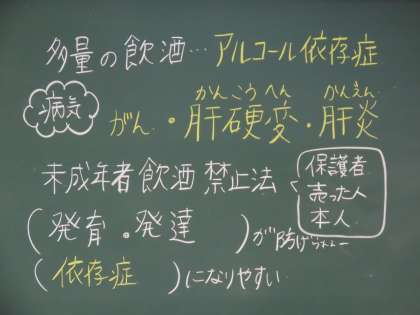 多量の飲酒…アルコール依存症
病気
かんこうへん かんえん
がん・肝硬変・肝炎
未成年者飲酒禁止法
保護者
売った人
本人
(発育・発達)が防げられ
(依存症)になりやすい